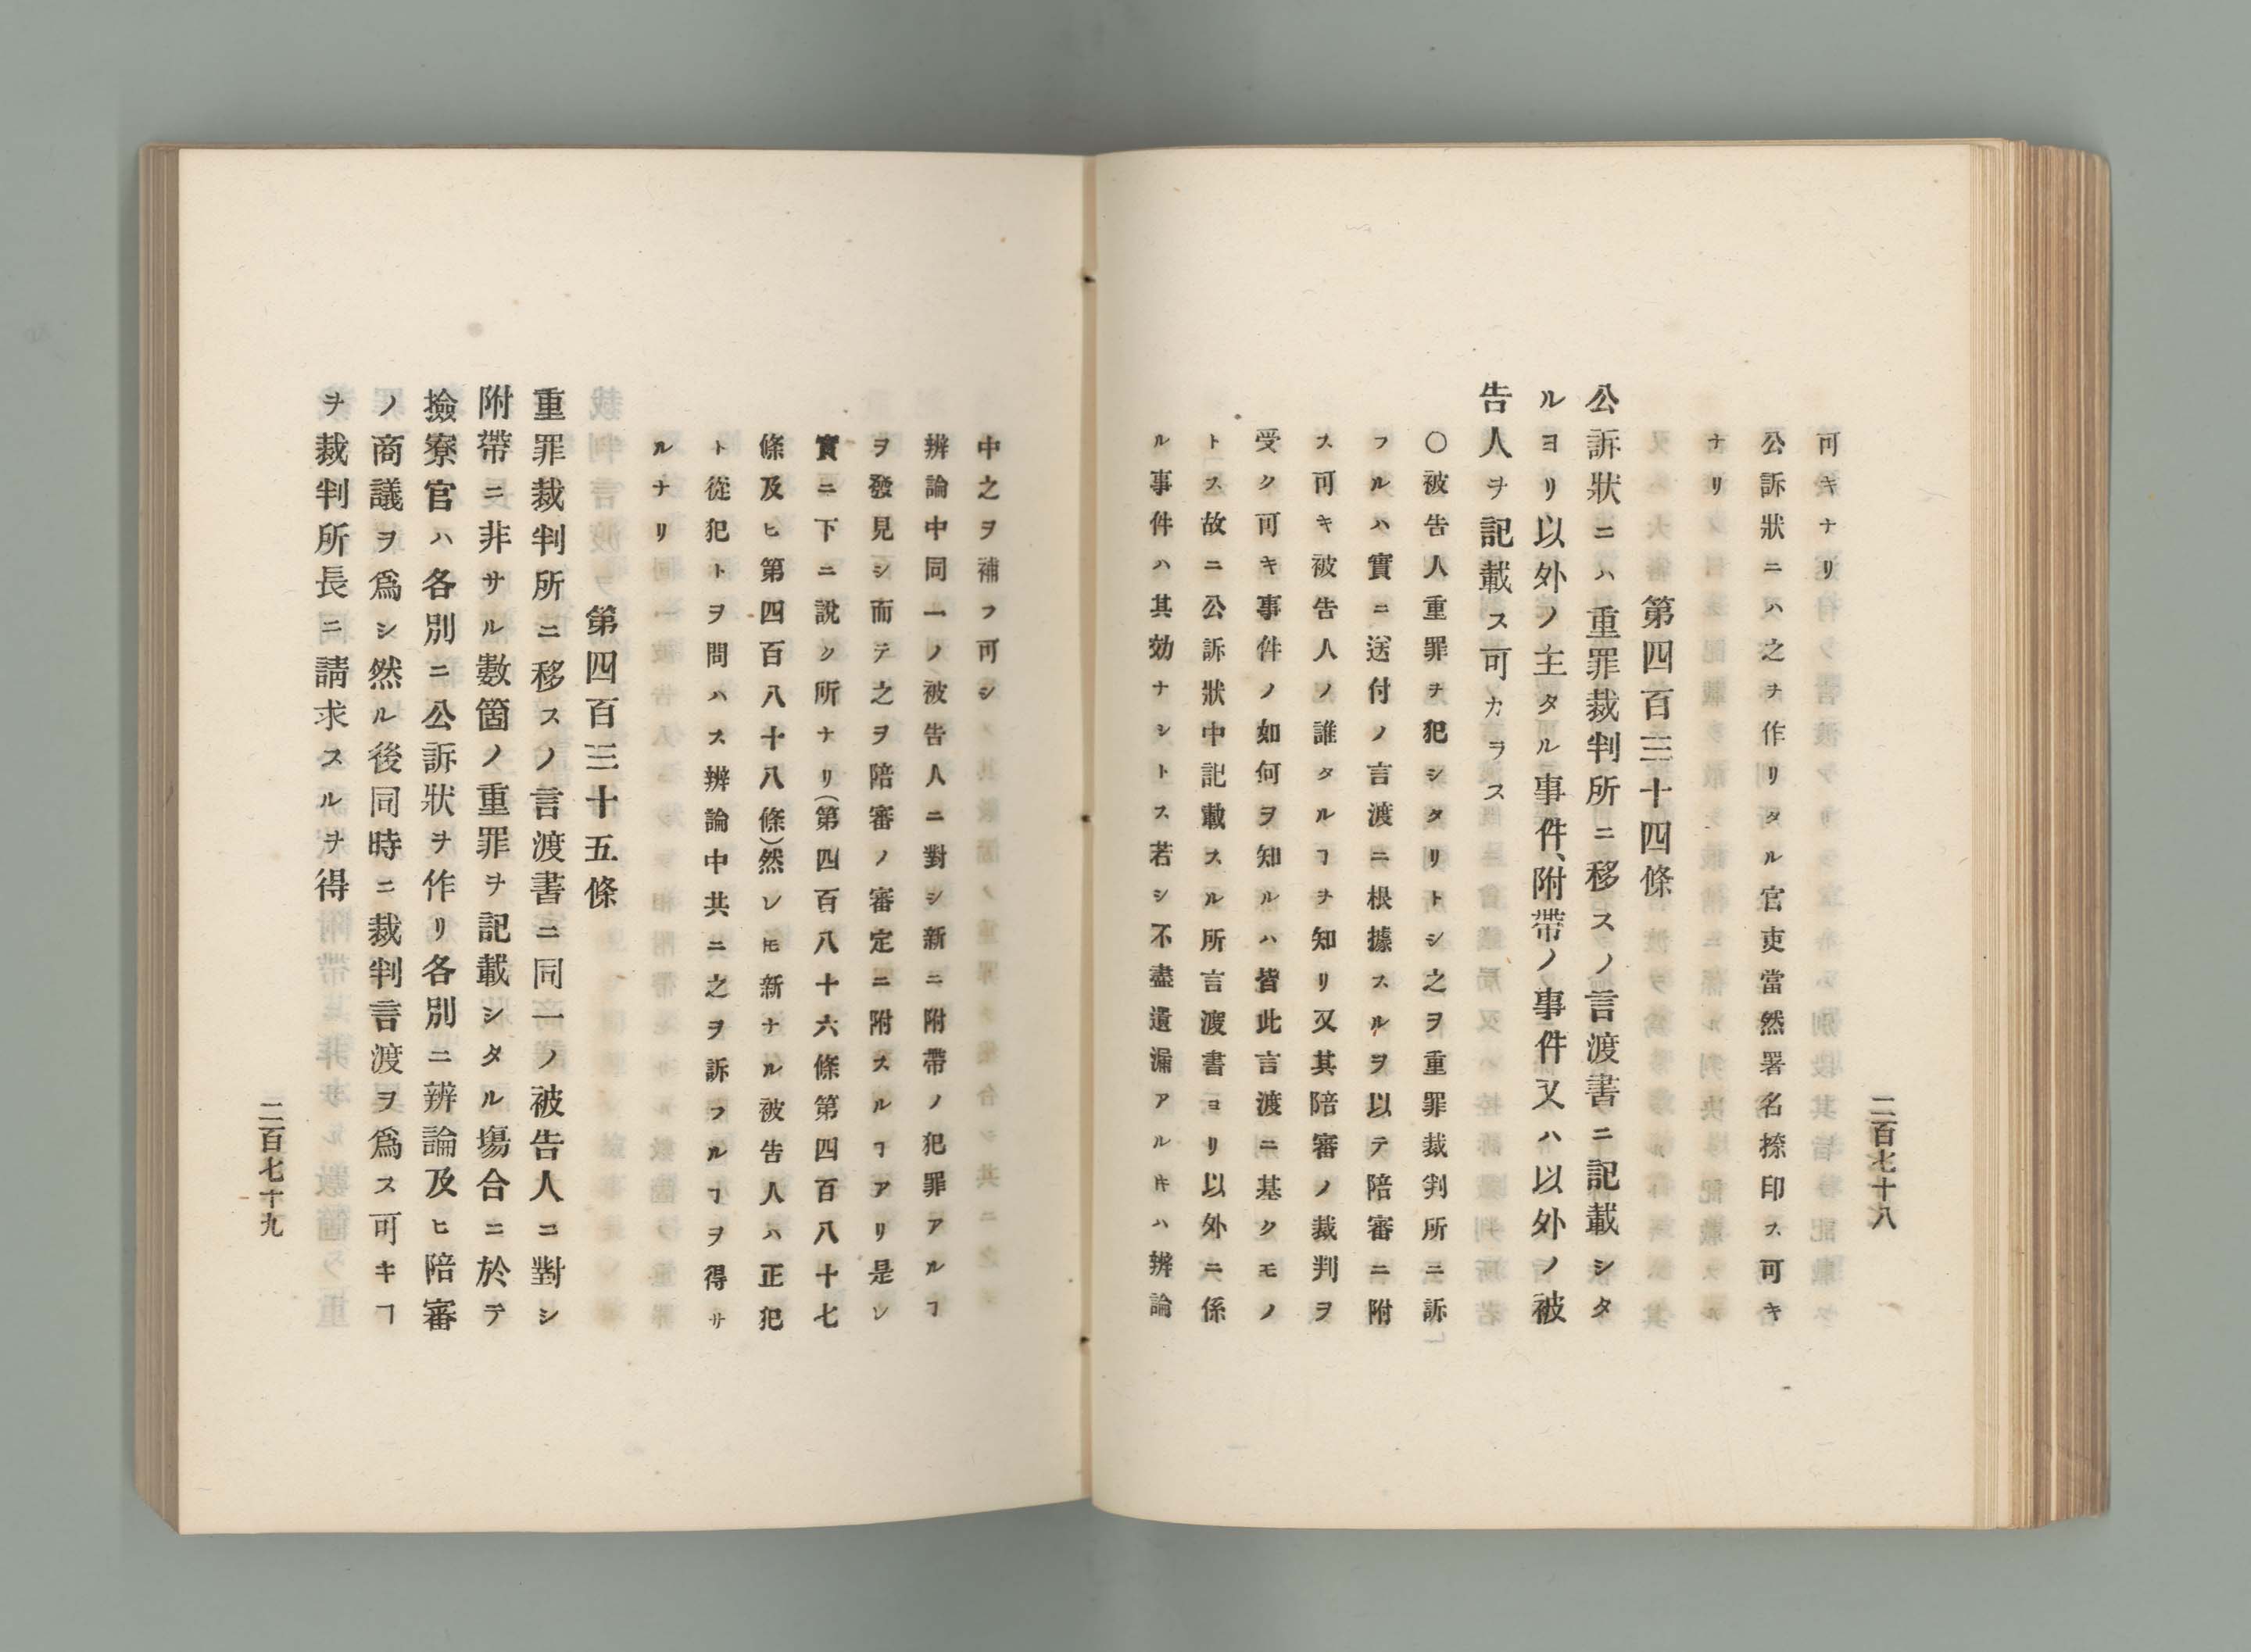 二百七十八
可キナリ
公訴狀ニハ之ヲ作リタル官吏當然署名捺印ス可キ
ナリ
第四百三十四條
公訴狀ニハ重罪裁判所ニ移スノ言渡書ニ記載シタ
ルヨリ以外ノ主タル事件、附帶ノ事件又ハ以外ノ被
告人ヲ記載ス可カラス
〇被告人重罪ヲ犯シタリトシ之ヲ重罪裁判所ニ訴
フルハ實ニ送付ノ言渡ニ根據スルヲ以テ陪審ニ附
ス可キ被告人ノ誰タルヿヲ知リ又其陪審ノ裁判ヲ
受ク可キ事件ノ如何ヲ知ルハ皆此言渡ニ基クモノ
トス故ニ公訴狀中記載スル所言渡書ヨリ以外ニ係
ル事件ハ其効ナシトス若シ不盡遺漏アル𪜈ハ辨論
中之ヲ補フ可シ
辨論中同一ノ被告人ニ對シ新ニ附帶ノ犯罪アルヿ
ヲ發見シ而テ之ヲ陪審ノ審定ニ附スルヿアリ是レ
實ニ下ニ說ク所ナリ(第四百八十六條第四百八十七
條及ヒ第四百八十八條)然レ𪜈新ナル被告人ハ正犯
ト從犯トヲ問ハス辨論中共ニ之ヲ訴フルヿヲ得サ
ルナリ
第四百三十五條
重罪裁判所ニ移スノ言渡書ニ同一ノ被告人ニ對シ
附帶ニ非サル數箇ノ重罪ヲ記載シタル塲合ニ於テ
撿寮官ハ各別ニ公訴狀ヲ作リ各別ニ辨論及ヒ陪審
ノ商議ヲ爲シ然ル後同時ニ裁判言渡ヲ爲ス可キヿ
ヲ裁判所長ニ請求スルヲ得
二百七十九